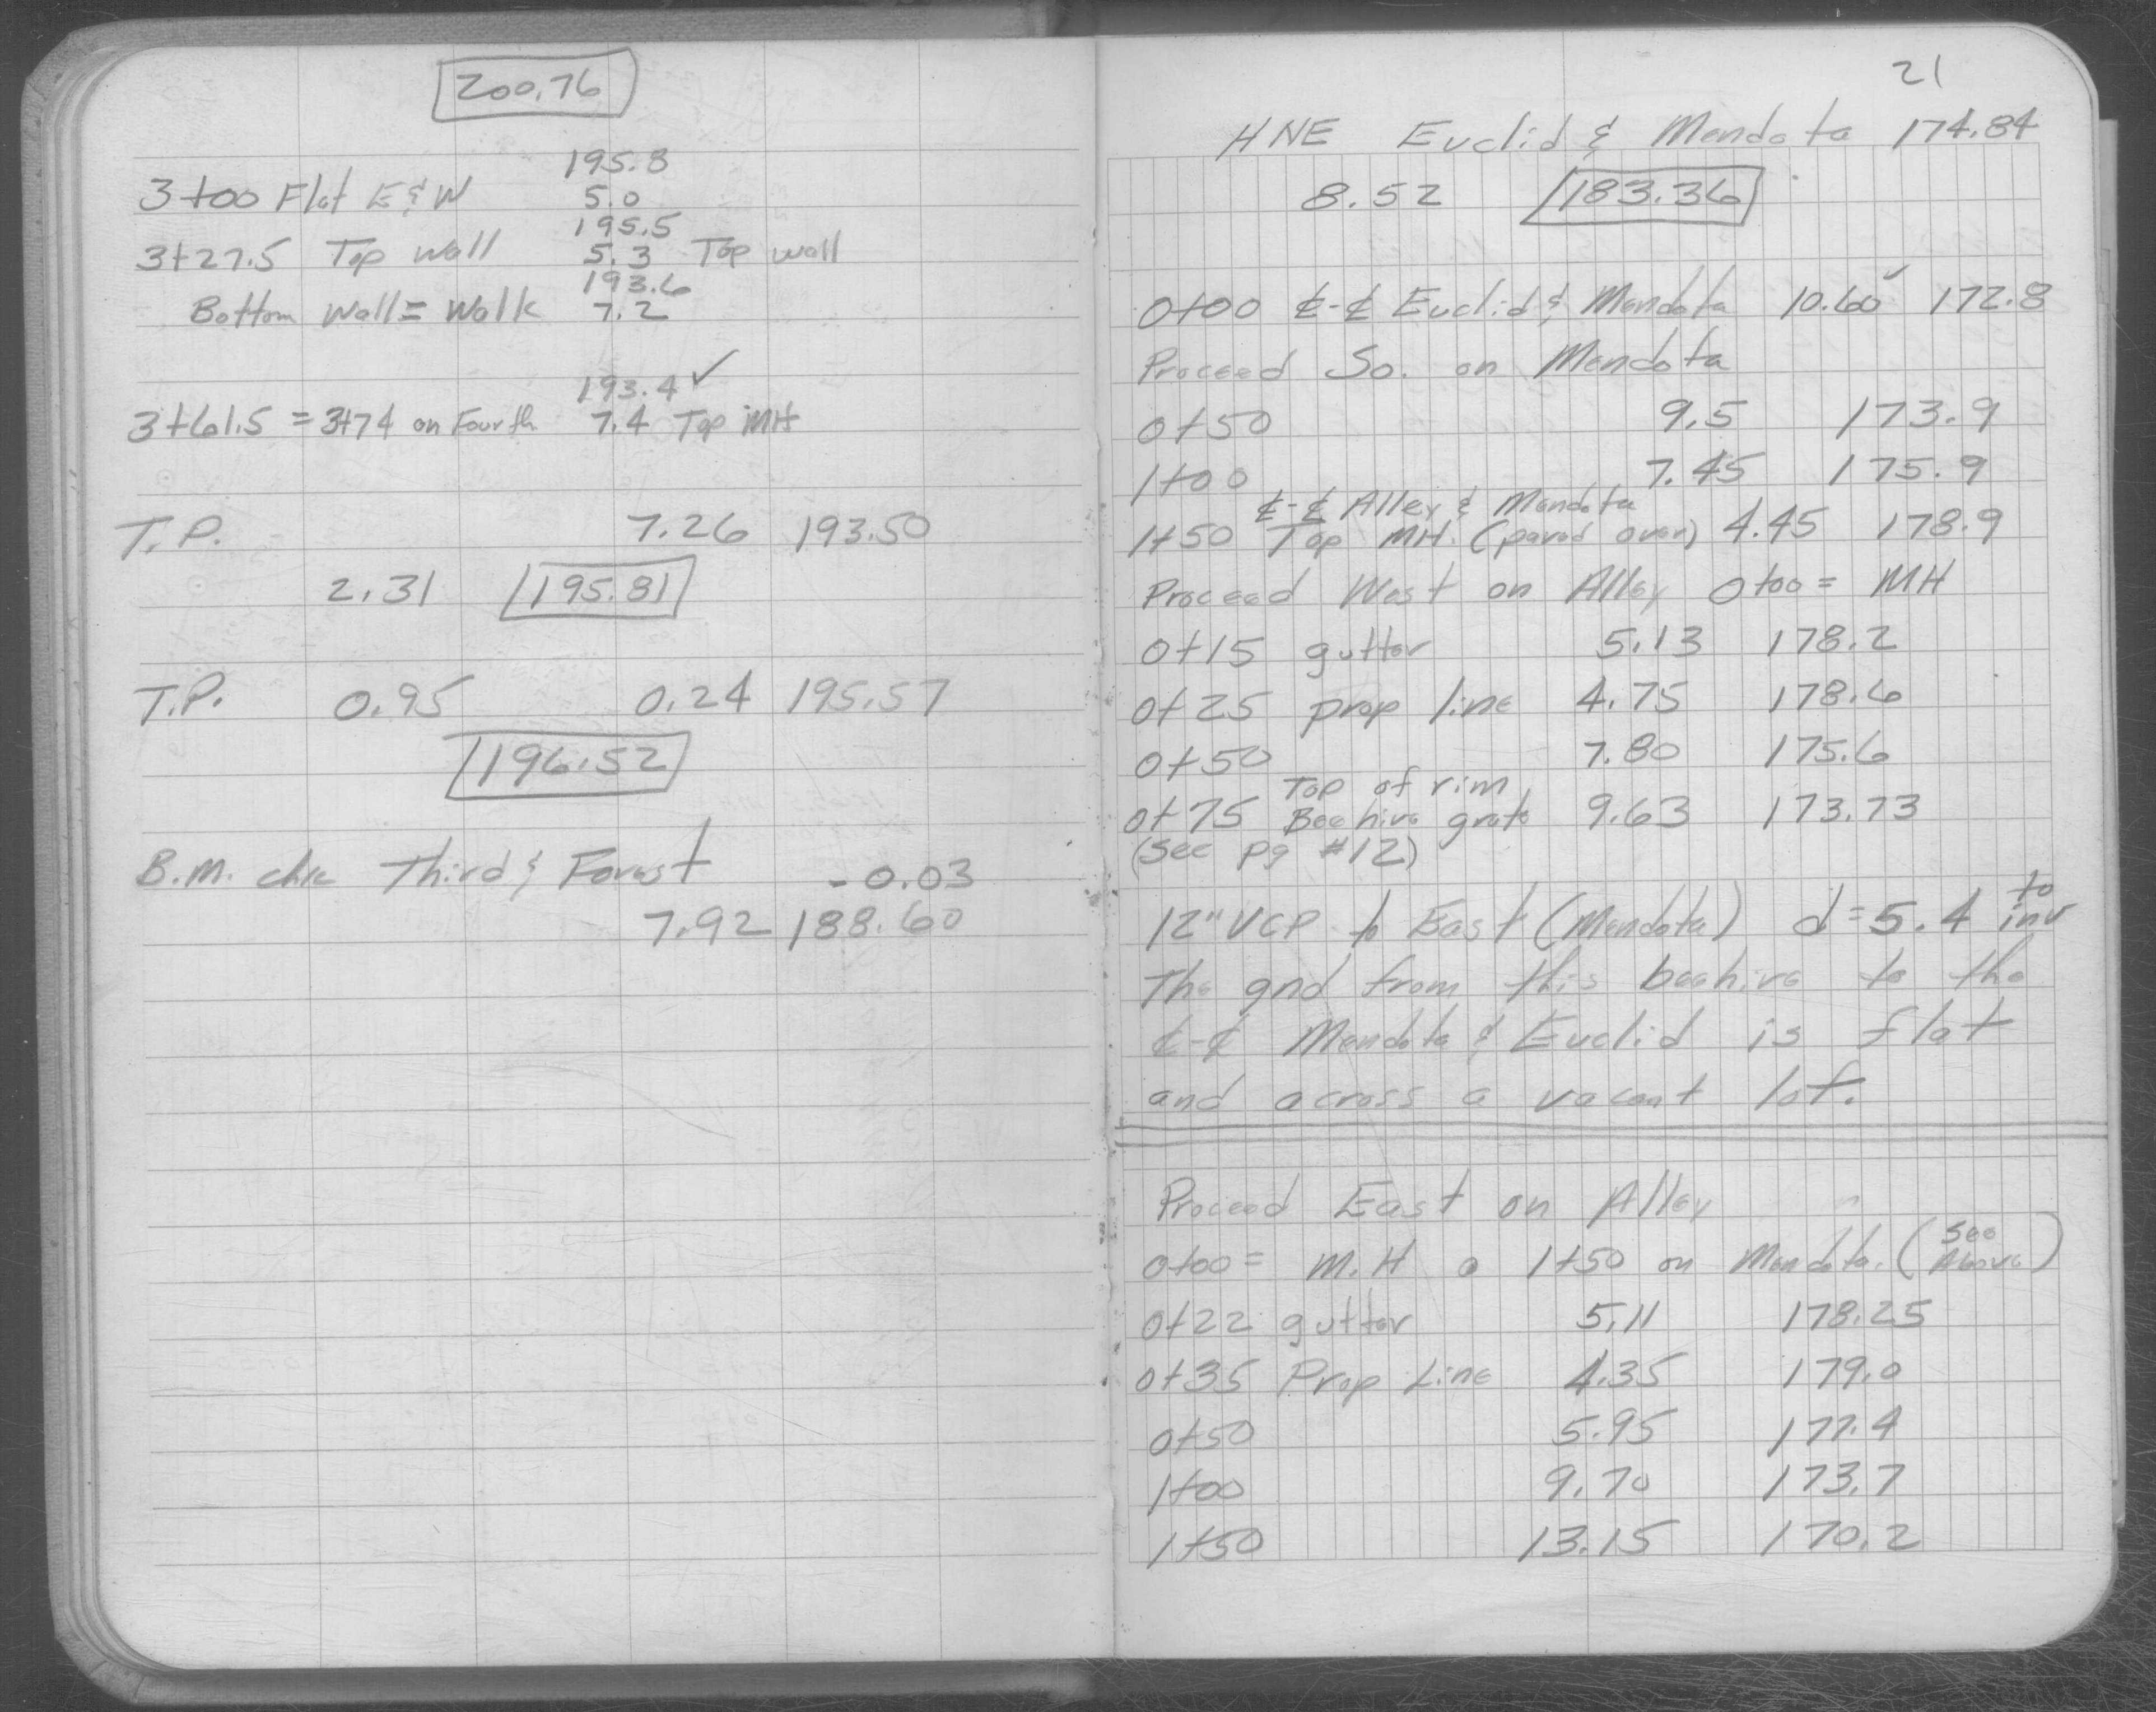 200.76
195.8
3+00 Flat E & W 5.0
195.5
3+27.5 Top wall 5.3 Top wall
193.6
Bottom Wall = Walk 7.2
193.4 ✓
3+61.5 = 3+74 on Fourth 7.4 Top MH
T.P. 7.26 193.50
2.31 195.81
T.P. 0.95 0.24 195.57
196.52
B.M. chk Third & Forest -0.03
7.92 188.60
21
HNE Euclid & Mendota 174.84
8.52 183.36
0+00 ℄-℄ Euclid & Mendota 10.60 ✓ 172.8
Proceed So. on Mendota
0+50 9.5 173.9
1+00 7.45 175.9
℄-℄ Alley & Mendota
1+50 Top MH. (paved over) 4.45 178.9
Proceed West on Alley 0+00 = MH
0+15 gutter 5.13 178.2
0+25 prop line 4.75 178.6
0+50 7.80 175.6
Top of rim
0+75 Beehive grate 9.63 173.73
(See pg #12)
12" VCP to East (Mendota) d = 5.4 to inv
The gnd from this beehive to the
℄-℄ Mendota & Euclid is flat
and across a vacant lot.
Proceed East on Alley
0+00 = M.H @ 1+50 on Mendota. (See Above)
0+22 gutter 5.11 178.25
0+35 Prop Line 4.35 179.0
0+50 5.95 177.4
1+00 9.70 173.7
1+50 13.15 170.2